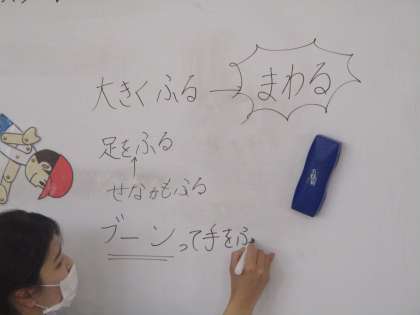 大きくふる → まわる
足をふる
↑
せなかもふる
ブーンって手をふ